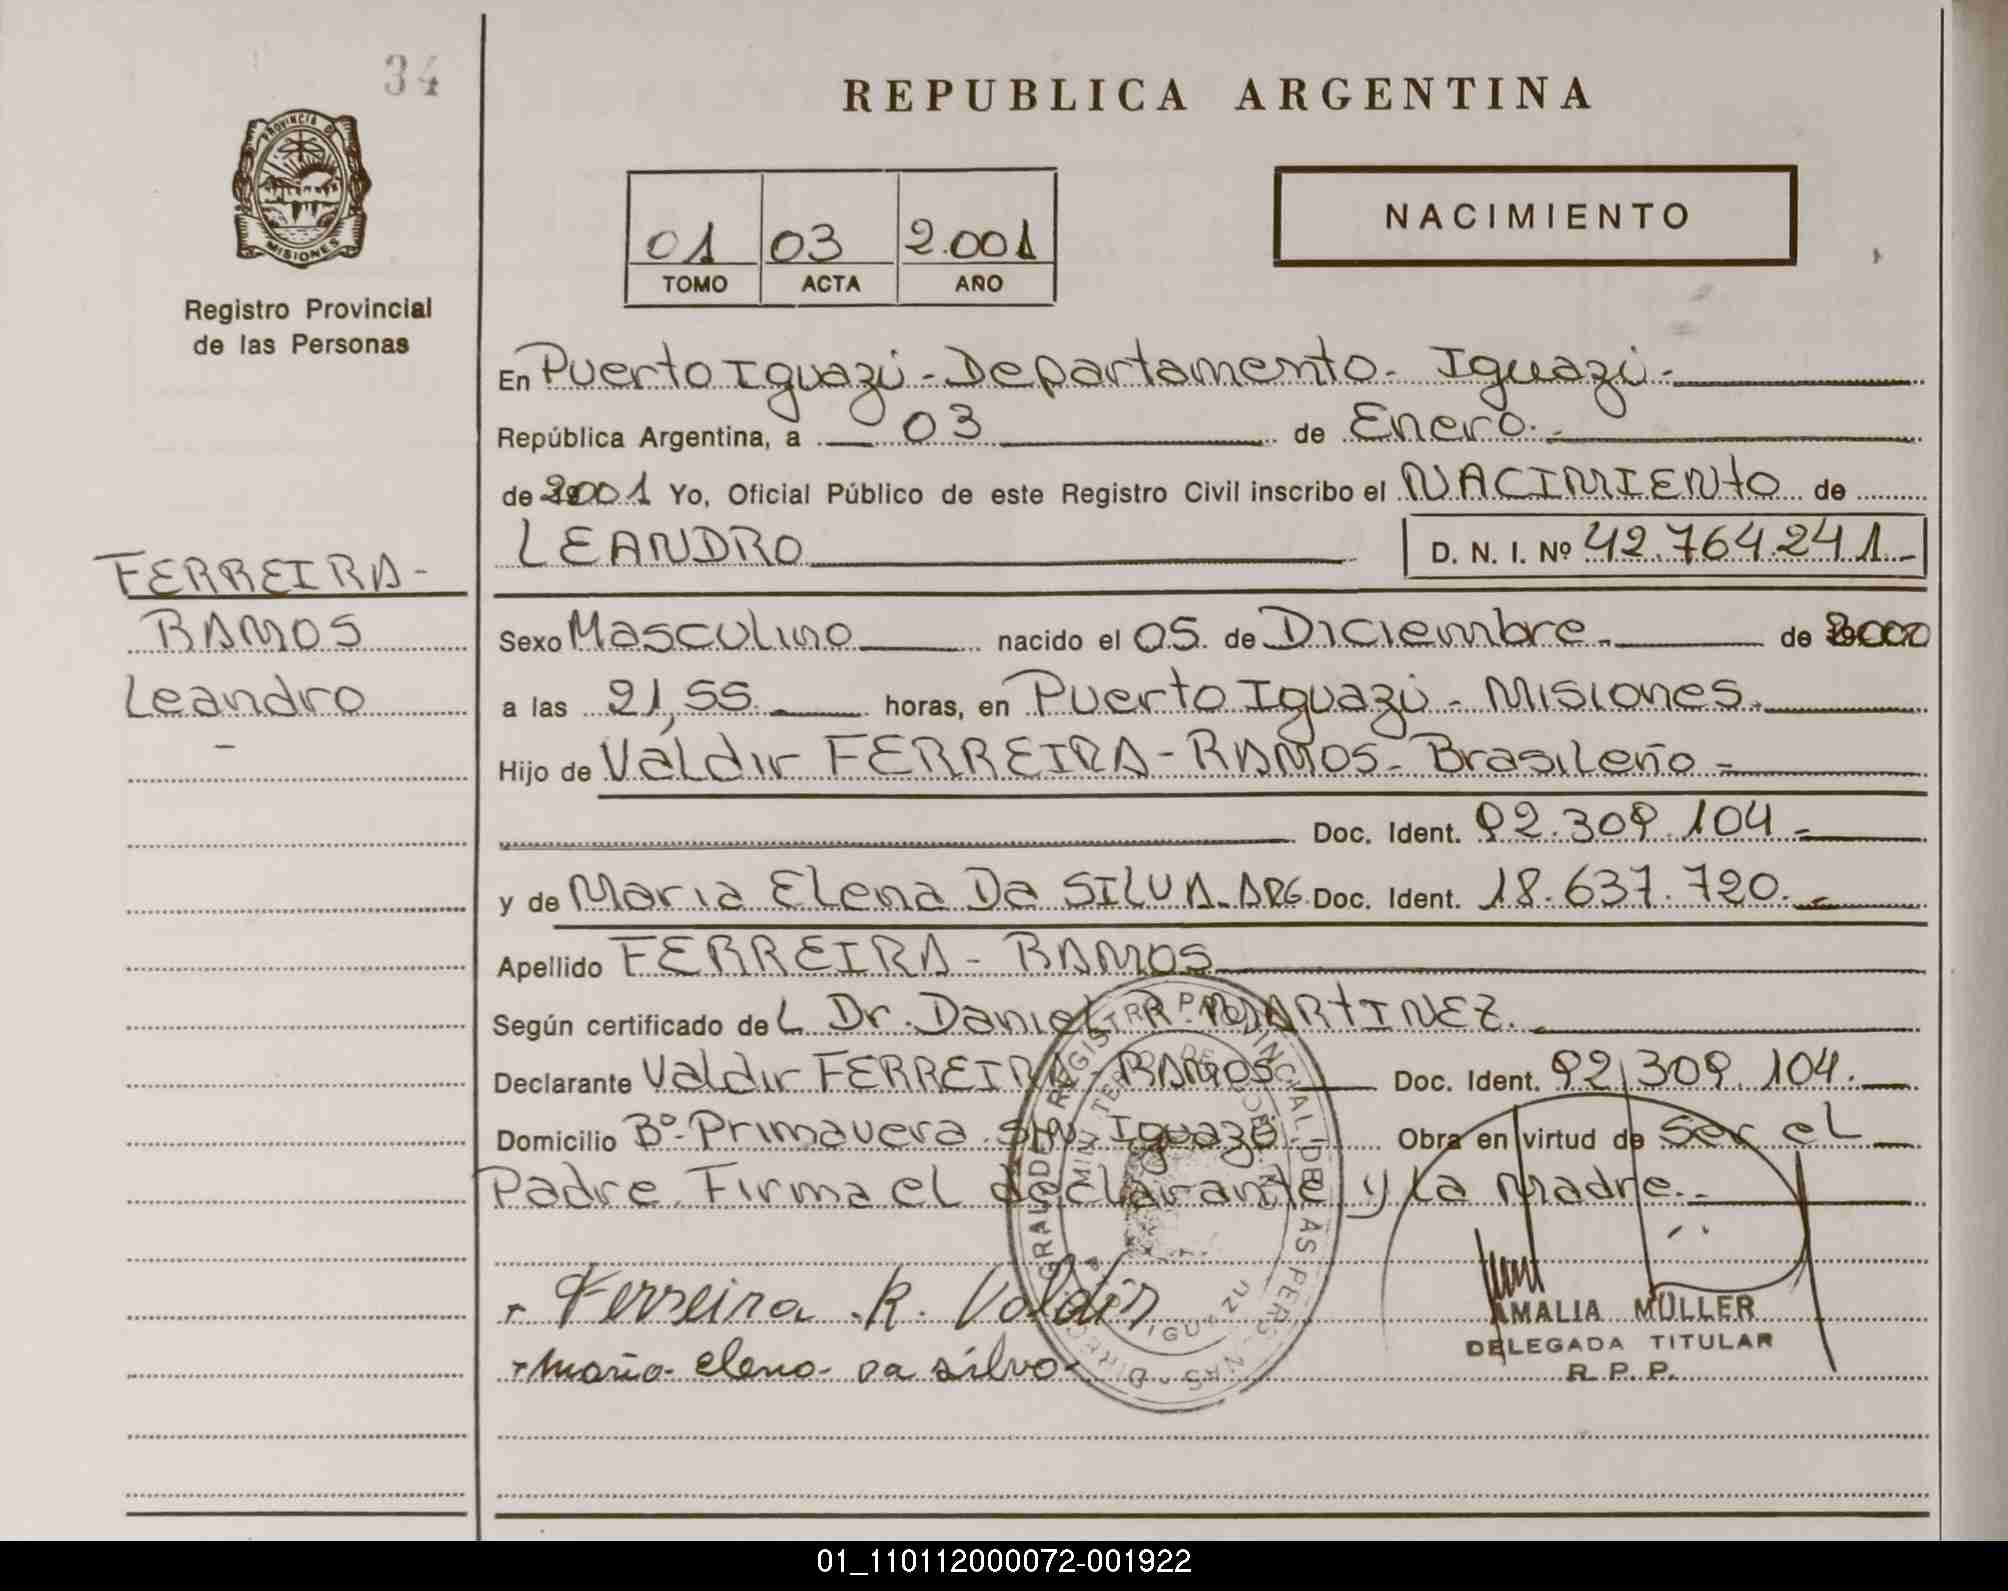 34
PROVINCIA DE
MISIONES
Registro Provincial
de las Personas
FERREIRA-
RAMOS
Leandro
-
REPUBLICA ARGENTINA
01 03 2.001
TOMO ACTA AÑO
NACIMIENTO
En Puerto Iguazú - Departamento - Iguazú -
República Argentina, a 03 de Enero.-
de 2001 Yo, Oficial Público de este Registro Civil inscribo el NACIMIENTO de
LEANDRO D. N. I. Nº 42.764.241-
Sexo Masculino nacido el 05 de Diciembre.- de 2000
a las 21,55 horas, en Puerto Iguazú - Misiones.
Hijo de Valdir FERREIRA-RAMOS- Brasileño -
Doc. Ident. 92.309.104-
y de Maria Elena Da SILVA-ARG. Doc. Ident. 18.637.720.-
Apellido FERREIRA - RAMOS
Según certificado de L Dr. Daniel R. MARTINEZ.
Declarante Valdir FERREIRA - RAMOS Doc. Ident. 92.309.104.
Domicilio Bº-Primavera S/N Iguazú - Obra en virtud de ser el
Padre. Firma el declarante y la madre.-
Ferreira .R. Valdir
maria- elena- da silva-
AMALIA MÜLLER
DELEGADA TITULAR
R. P. P.
01_110112000072-001922